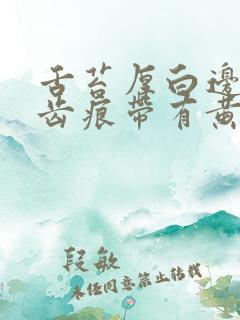 舌苔厚白邊
齒痕帶有黃
段敏
未经同意禁止转载